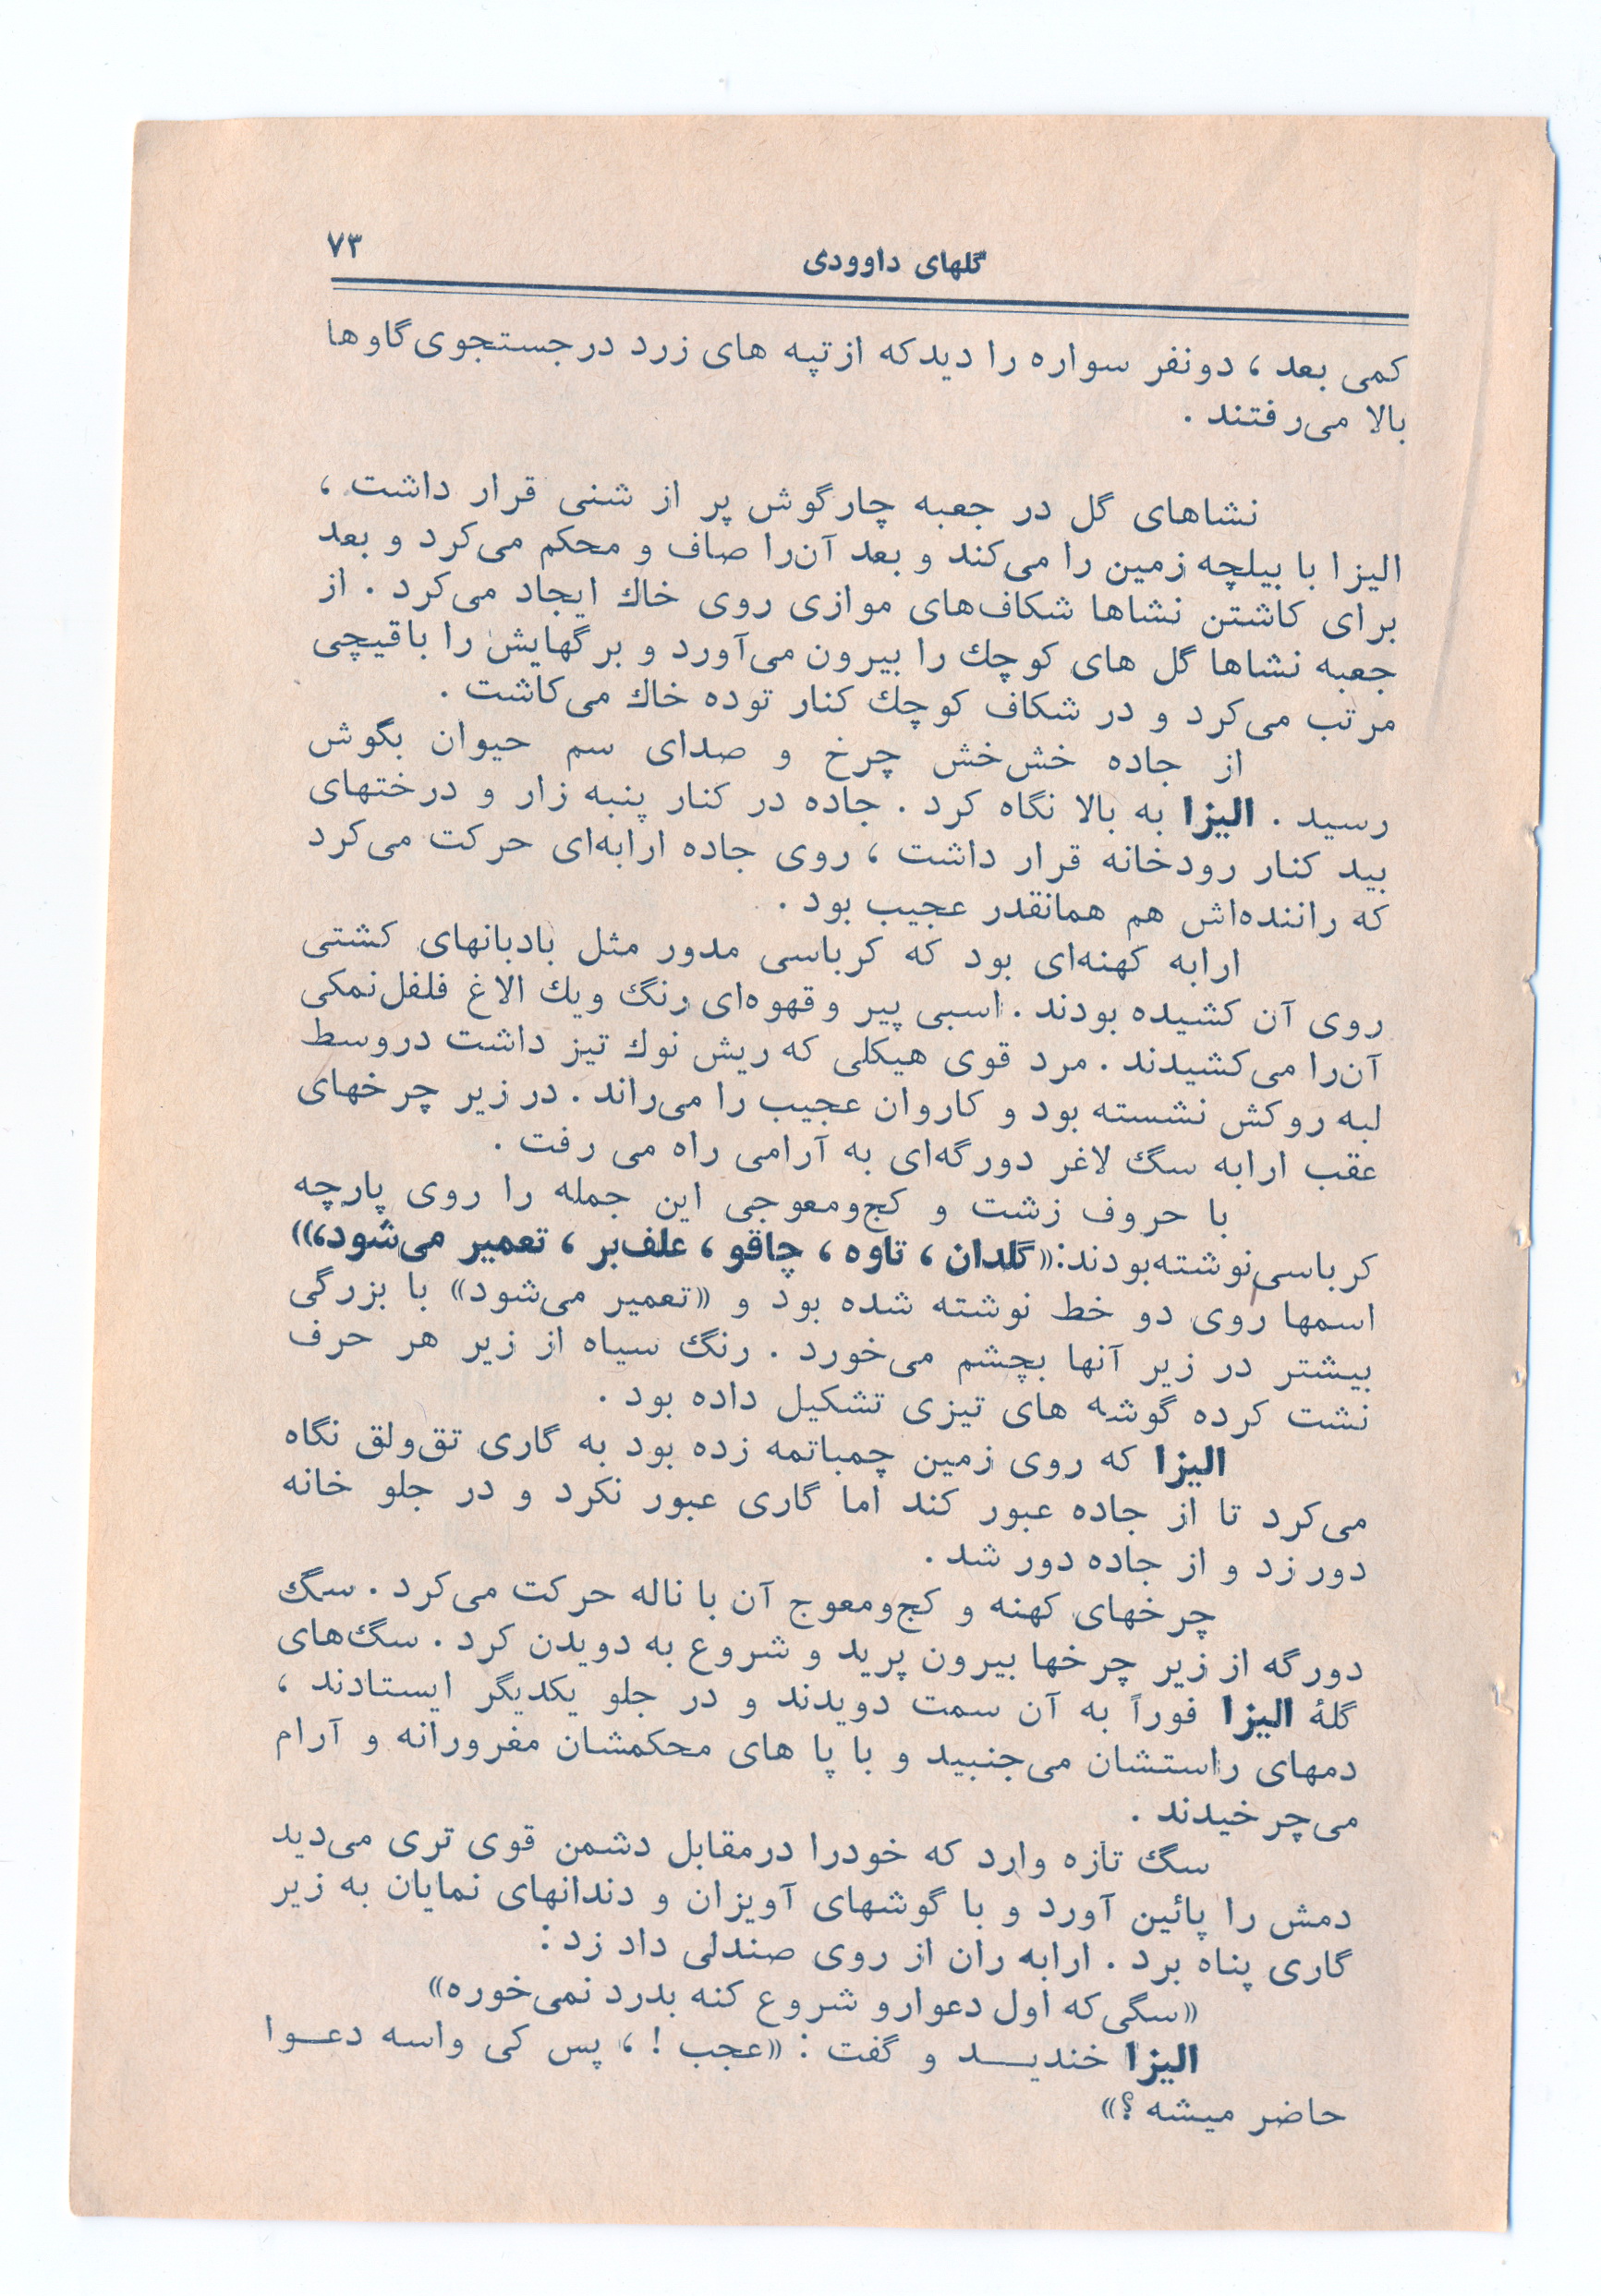 گلهای داوودی
۷۳
کمی بعد ، دونفر سواره را دیدکه ازتپه های زرد درجستجوی گاوها
بالا می‌رفتند .
نشاهای گل در جعبه چارگوش پر از شنی قرار داشت ،
الیزا با بیلچه زمین را می‌کند و بعد آن‌را صاف و محکم می‌کرد و بعد
برای کاشتن نشاها شکاف‌های موازی روی خاك ایجاد می‌کرد . از
جعبه نشاها گل های کوچك را بیرون می‌آورد و برگهایش را باقیچی
مرتب می‌کرد و در شکاف کوچك کنار توده خاك می‌کاشت .
از جاده خش‌خش چرخ و صدای سم حیوان بگوش
رسید . الیزا به بالا نگاه کرد . جاده در کنار پنبه زار و درختهای
بید کنار رودخانه قرار داشت ، روی جاده ارابه‌ای حرکت می‌کرد
که راننده‌اش هم همانقدر عجیب بود .
ارابه کهنه‌ای بود که کرباسی مدور مثل بادبانهای کشتی
روی آن کشیده بودند . اسبی پیر وقهوه‌ای رنگ ویك الاغ فلفل‌نمکی
آن‌را می‌کشیدند . مرد قوی هیکلی که ریش نوك تیز داشت دروسط
لبه روکش نشسته بود و کاروان عجیب را می‌راند . در زیر چرخهای
عقب ارابه سگ لاغر دورگه‌ای به آرامی راه می رفت .
با حروف زشت و کج‌ومعوجی این جمله را روی پارچه
کرباسی‌نوشته‌بودند:«گلدان ، تاوه ، چاقو ، علف‌بر ، تعمیر می‌شود،»
اسمها روی دو خط نوشته شده بود و «تعمیر می‌شود» با بزرگی
بیشتر در زیر آنها بچشم می‌خورد . رنگ سیاه از زیر هر حرف
نشت کرده گوشه های تیزی تشکیل داده بود .
الیزا که روی زمین چمباتمه زده بود به گاری تق‌ولق نگاه
می‌کرد تا از جاده عبور کند اما گاری عبور نکرد و در جلو خانه
دور زد و از جاده دور شد .
چرخهای کهنه و کج‌ومعوج آن با ناله حرکت می‌کرد . سگ
دورگه از زیر چرخها بیرون پرید و شروع به دویدن کرد . سگ‌های
گلهٔ الیزا فوراً به آن سمت دویدند و در جلو یکدیگر ایستادند ،
دمهای راستشان می‌جنبید و با پا های محکمشان مغرورانه و آرام
می‌چرخیدند .
سگ تازه وارد که خودرا درمقابل دشمن قوی تری می‌دید
دمش را پائین آورد و با گوشهای آویزان و دندانهای نمایان به زیر
گاری پناه برد . ارابه ران از روی صندلی داد زد :
«سگی‌که اول دعوارو شروع کنه بدرد نمی‌خوره»
الیزا خندیـــد و گفت : «عجب ! ، پس کی واسه دعـــوا
حاضر میشه ؟»